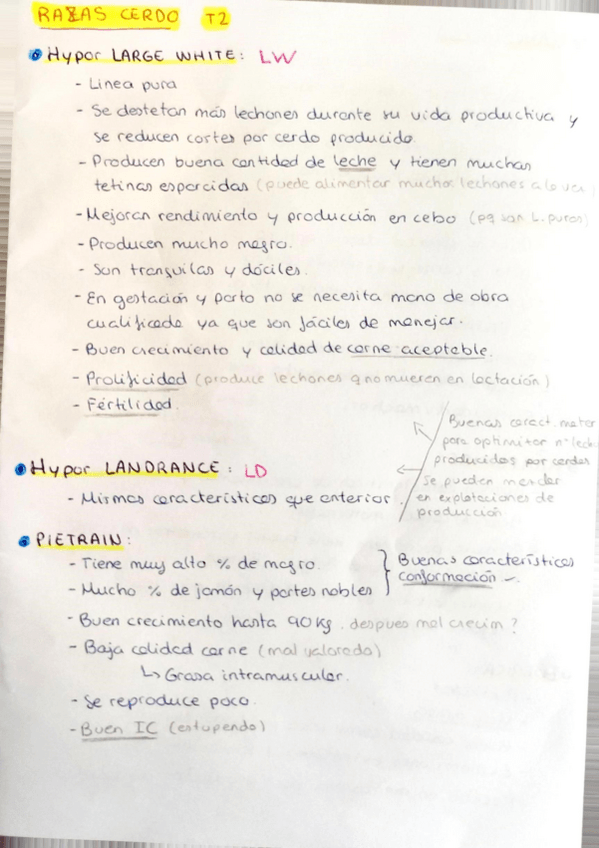 RAZAS CERDO T2
Hypor LARGE WHITE: LW
- Linea pura
- Se destetan más lechones durante su vida productiva y
se reducen cortes por cerdo producido.
- Producen buena cantidad de leche y tienen muchas
tetinas esparcidas (puede alimentar muchos lechones a la vez)
- Mejoran rendimiento y producción en cebo (pq son L. puras)
- Producen mucho magro.
- Son tranquilas y dóciles.
- En gestación y parto no se necesita mano de obra
cualificada ya que son fáciles de manejar.
- Buen crecimiento y calidad de carne aceptable.
- Prolificidad (produce lechones q no mueren en lactación)
- Fértilidad.
Buenas caract. mater
para optimizar nº lech
producidos por cerdas
Se pueden mezclar
en explotaciones de
producción
Hypor LANDRANCE: LD
- Mismas características que anterior.
PIETRAIN:
- Tiene muy alto % de magro.
- Mucho % de jamón y partes nobles
Buenas características
conformación
- Buen crecimiento hasta 90 Kg. despues mal crecim?
- Baja calidad carne (mal valorada)
↳ Grasa intramuscular.
- Se reproduce poco.
- Buen IC (estupendo)